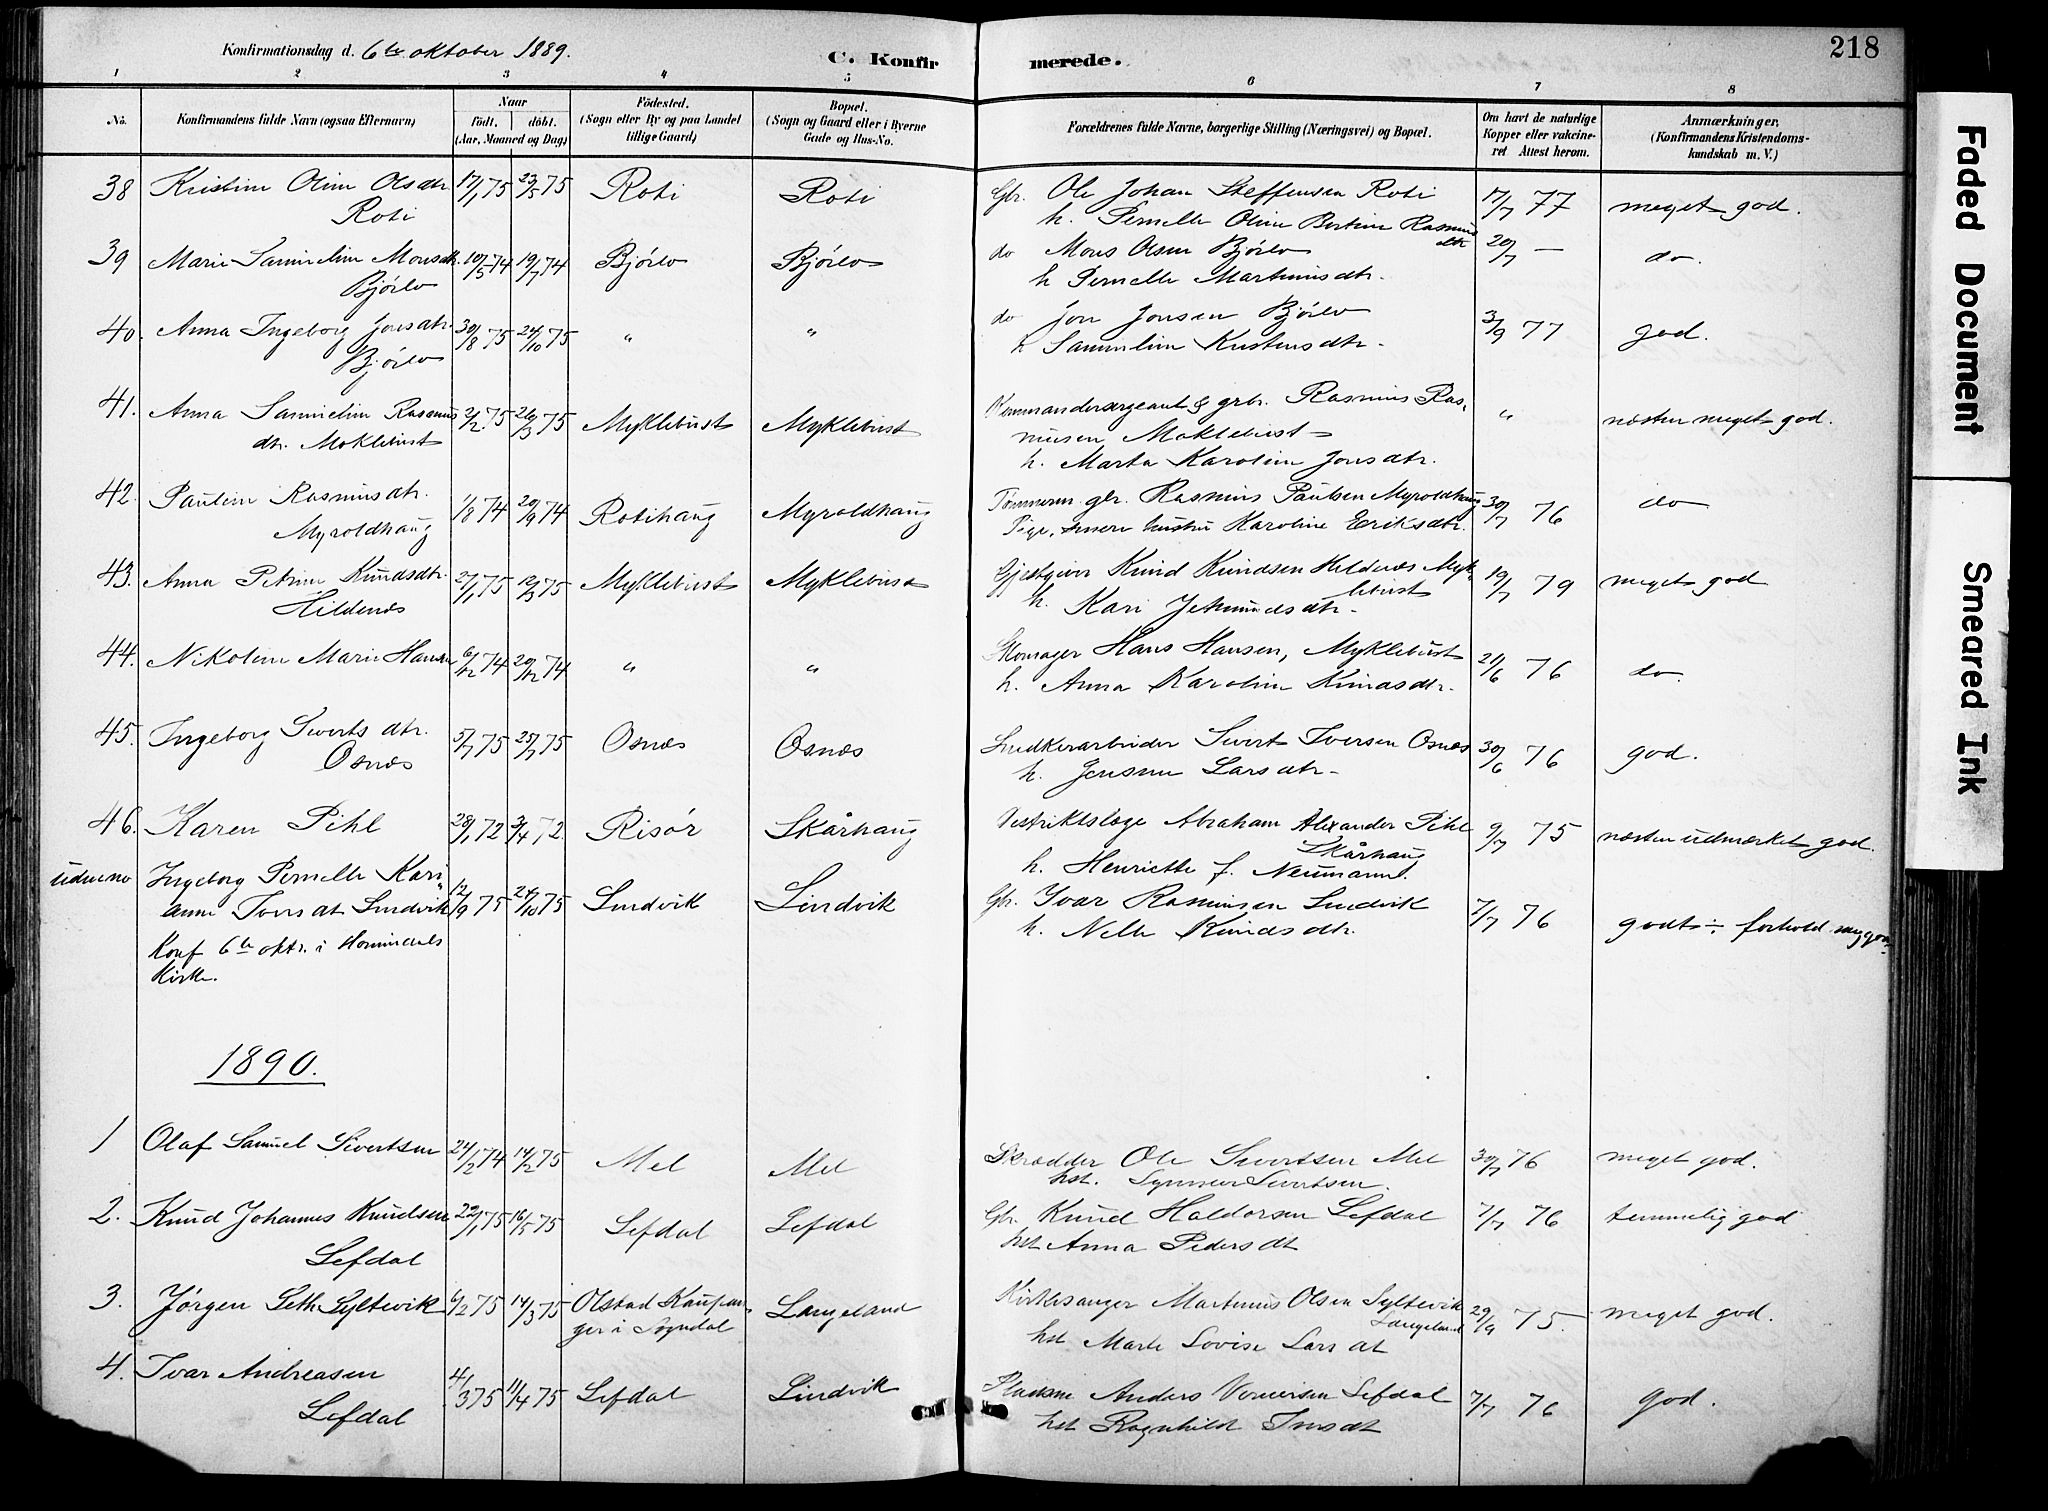 218
Konfirmationsdag d. 6te oktober 1889.
C. Konfirmerede.
1 2 3 4 5 6 7 8
No. Konfirmandens fulde Navn (ogsaa Efternavn) Naar født. døbt. (Aar, Maaned og Dag) Fødested. (Sogn eller By og paa Landet tillige Gaard) Bopæl. (Sogn og Gaard eller i Byerne Gade og Hus-No. Forældrenes fulde Navne, borgerlige Stilling (Næringsvei) og Bopæl. Om havt de naturlige Kopper eller vakcineret Attest herom. Anmærkninger. (Konfirmandens Kristendomskundskab m. V.)
38 Kristine Oline Olsdtr. 17/1 75 23/5 75 Roti Roti Gbr. Ole Johan Steffensen Roti 17/7 77 meget god.
Roti h. Pernelle Oline Bertine Rasmusdtr
39 Marie Sanneline Monsdtr. 10/5 74 19/7 74 Bjørlo Bjørlo do Mons Olsen Bjørlo 20/7 — do.
Bjørlo h Pernelle Martinusdtr.
40. Anna Ingeborg Jonsdtr. 30/8 75 24/10 75 " " do Jon Jonsen Bjørlo 3/9 77 god.
Bjørlo h Sanneline Kristensdtr.
41. Anna Sanneline Rasmus 2/2 75 26/3 75 Myklebust Myklebust Kommandersergeant & grbr. Rasmus Ras- " næsten meget god.
dtr. Moklebust musen Moklebust
h. Marta Karoline Jonsdtr.
42. Pauline Rasmusdtr. 1/8 74 20/9 74 Rotihaug Myroldhaug Tømmerm. gbr. Rasmus Paulsen Myroldhaug 30/7 76 do
Myroldhaug Pige, hustru Karoline Eriksdtr.
43. Anna Petrine Knudsdtr. 27/1 75 12/3 75 Myklebust Myklebust Gjestgiver Knud Knudsen Hildenes Myk- 19/7 79 meget god
Hildenæs lebust
h. Kari Jetmundsdtr.
44. Nikoline Marie Hansen 6/12 74 20/12 74 " " Skomager Hans Hansen, Myklebust 21/6 76 do.
h. Anna Karoline Knudsdtr.
45. Ingeborg Sivertsdtr. 5/7 75 25/7 75 Osnæs Osnæs Snedkerarbeider Sivert Iversen Osnæs 30/6 76 god.
Osnæs h. Jensine Larsdtr.
46. Karen Pihl 28/1 72 3/4 72. Risør Skårhaug Distriktslæge Abraham Alexander Pihl 9/7 75 næsten udmærket god.
Skårhaug
h. Henriette f. Neumann.
udenso Ingeborg Pernelle Kari- 12/9 75 24/10 75 Lindvik Lindvik Gbr. Ivar Rasmusen Lindvik 7/7 76 godt ÷ forhold meg god
anne Iversdt Lindvik h. Nelle Knudsdtr.
Konf 6te oktr. i Hornindals
Kirke.
1890.
1 Olaf Samuel Sivertsen 24/12 74 14/2 75 Mel Mel Skrædder Ole Sivertsen Mel 30/7 76 meget god.
hst. Synneve Sivertsen.
2. Knud Johannes Knudsen 22/1 75 16/5 75 Lefdal Lefdal Gbr. Knud Haldorsen Lefdal 7/7 76 temmelig god
Lefdal hst Anna Pedersdt
3. Jørgen Seth Syltevik 6/2 75 14/3 75 Olstad Kaupan- Langeland Kirkesanger Martinus Olsen Syltevik 29/9 75. meget god.
ger i Sogndal Langeland
hst Marte Lovise Larsdt
4. Ivar Andreasen 4/3 75 11/4 75 Lefdal Lindvik Pladsm Anders Lefdal 7/7 76 god.
Lefdal hst Ragnhilde
Faded Document
Smeared Ink